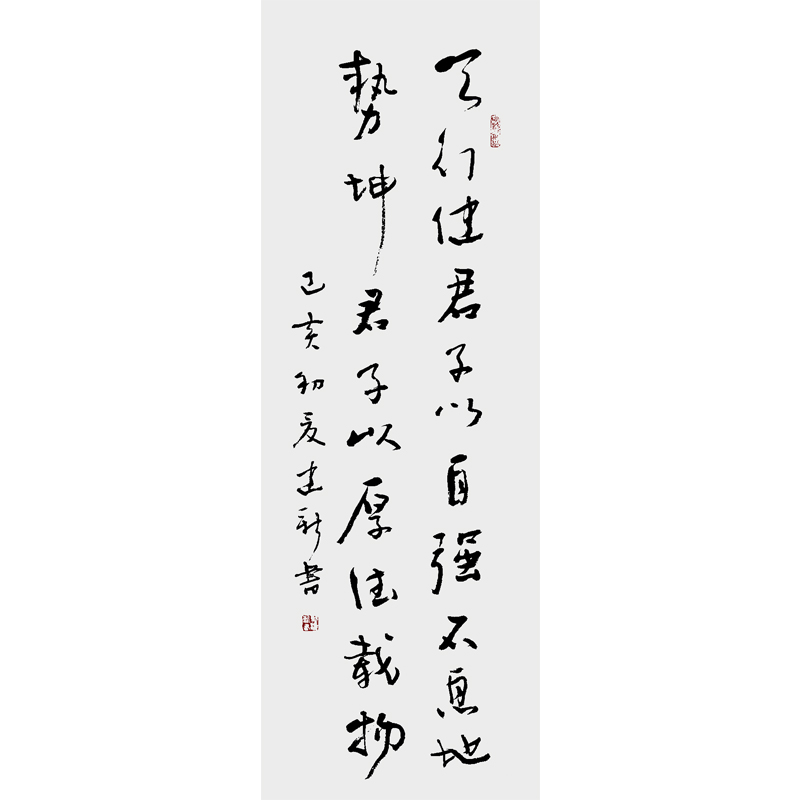 天行健君子以自强不息地
势坤君子以厚德载物
己亥初夏建新书